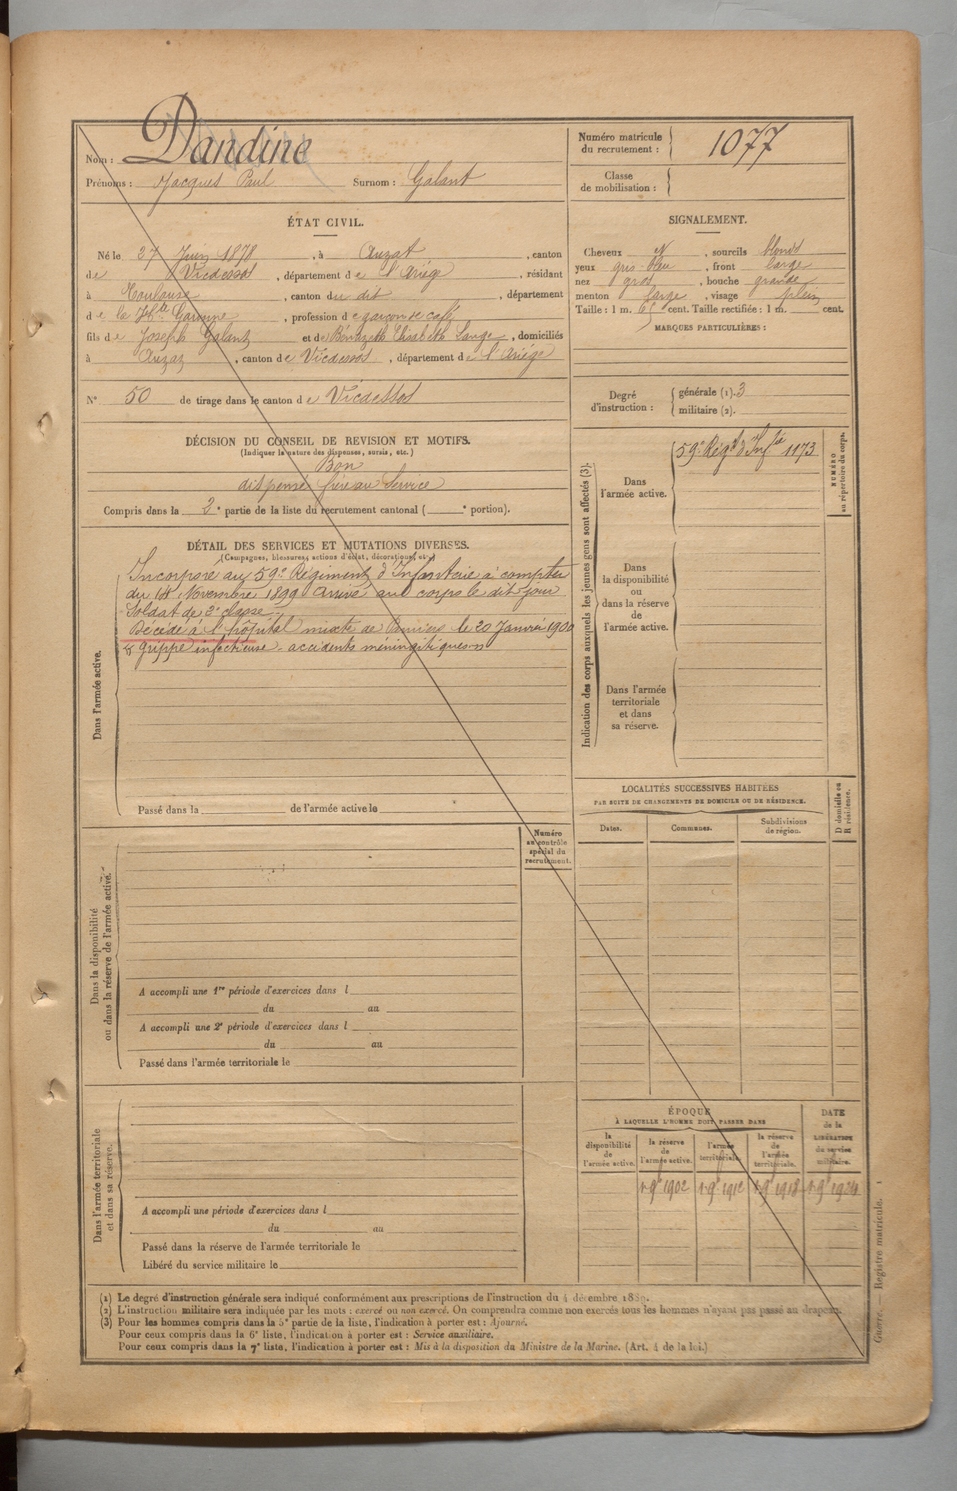 Nom : Dandine
Prénoms : Jacques Paul Surnom : Galant
Numéro matricule du recrutement : 1077
Classe de mobilisation :
ÉTAT CIVIL.
Né le 27 Juin 1878, à Auzat, canton
de Vicdessos, département de l'Ariège, résidant
à Toulouse, canton du dit, département
de la Hte Garonne, profession de garçon de café
fils de Joseph Galant et de Bénazeth Elisabeth Lange, domiciliés
à Auzat, canton de Vicdessos, département de l'Ariège
N° 50 de tirage dans le canton de Vicdessos
SIGNALEMENT.
Cheveux et, sourcils blonds
yeux gris-bleu, front large
nez gros, bouche grande
menton large, visage plein
Taille : 1 m. 65 cent. Taille rectifiée : 1 m. cent.
MARQUES PARTICULIÈRES :
Degré d'instruction : générale (1). 3
militaire (2).
DÉCISION DU CONSEIL DE REVISION ET MOTIFS.
(Indiquer la nature des dispenses, sursis, etc.)
Bon
dispensé frère au service
Compris dans la 2e partie de la liste du recrutement cantonal ( e portion).
DÉTAIL DES SERVICES ET MUTATIONS DIVERSES.
(Campagnes, blessures, actions d'éclat, décorations, etc.)
Dans l'armée active.
Incorporé au 59e Régiment d'Infanterie à compter
du Novembre 1899 Arrivé au corps le dit jour
Soldat de 2e classe.
Décédé à l'hôpital mixte de Pamiers le 20 Janvier 1900
grippe infectieuse - accidents méningitiques
Passé dans la de l'armée active le
Indication des corps auxquels les jeunes gens sont affectés (3).
NUMÉRO au répertoire du corps.
Dans l'armée active.
59e Régt d'Infie 1173
Dans la disponibilité ou dans la réserve de l'armée active.
Dans l'armée territoriale et dans sa réserve.
LOCALITÉS SUCCESSIVES HABITÉES
PAR SUITE DE CHANGEMENTS DE DOMICILE OU DE RÉSIDENCE.
Dates. Communes. Subdivisions de région. D domicile ou R résidence.
Numéro au contrôle spécial du recrutement.
Dans la disponibilité ou dans la réserve de l'armée active.
A accompli une 1re période d'exercices dans l
du au
A accompli une 2e période d'exercices dans l
du au
Passé dans l'armée territoriale le
Dans l'armée territoriale et dans sa réserve.
A accompli une période d'exercices dans l
du au
Passé dans la réserve de l'armée territoriale le
Libéré du service militaire le
ÉPOQUE
À LAQUELLE L'HOMME DOIT PASSER DANS
la disponibilité de l'armée active.
la réserve de l'armée active.
l'armée territoriale.
la réserve de l'armée territoriale.
DATE de la LIBÉRATION du service militaire.
1 9e 1902 1 9e 1912 1 9e 1918 1 9e 1924
(1) Le degré d'instruction générale sera indiqué conformément aux prescriptions de l'instruction du 4 décembre 1889.
(2) L'instruction militaire sera indiquée par les mots : exercé ou non exercé. On comprendra comme non exercés tous les hommes n'ayant pas passé au drapeau.
(3) Pour les hommes compris dans la 5e partie de la liste, l'indication à porter est : Ajourné.
Pour ceux compris dans la 6e liste, l'indication à porter est : Service auxiliaire.
Pour ceux compris dans la 7e liste, l'indication à porter est : Mis à la disposition du Ministre de la Marine. (Art. 4 de la loi.)
Guerre. — Registre matricule. 1